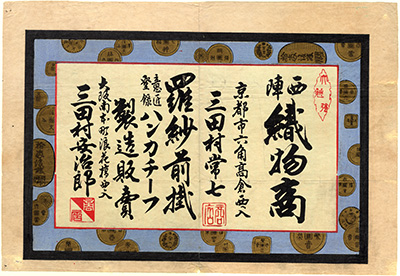 西陣
織物商
京都市六角高倉西入
三田村常七
羅紗前掛
意匠登録
ハンカチーフ
製造販賣
大阪南本町浪花橋西入
三田村安治郎